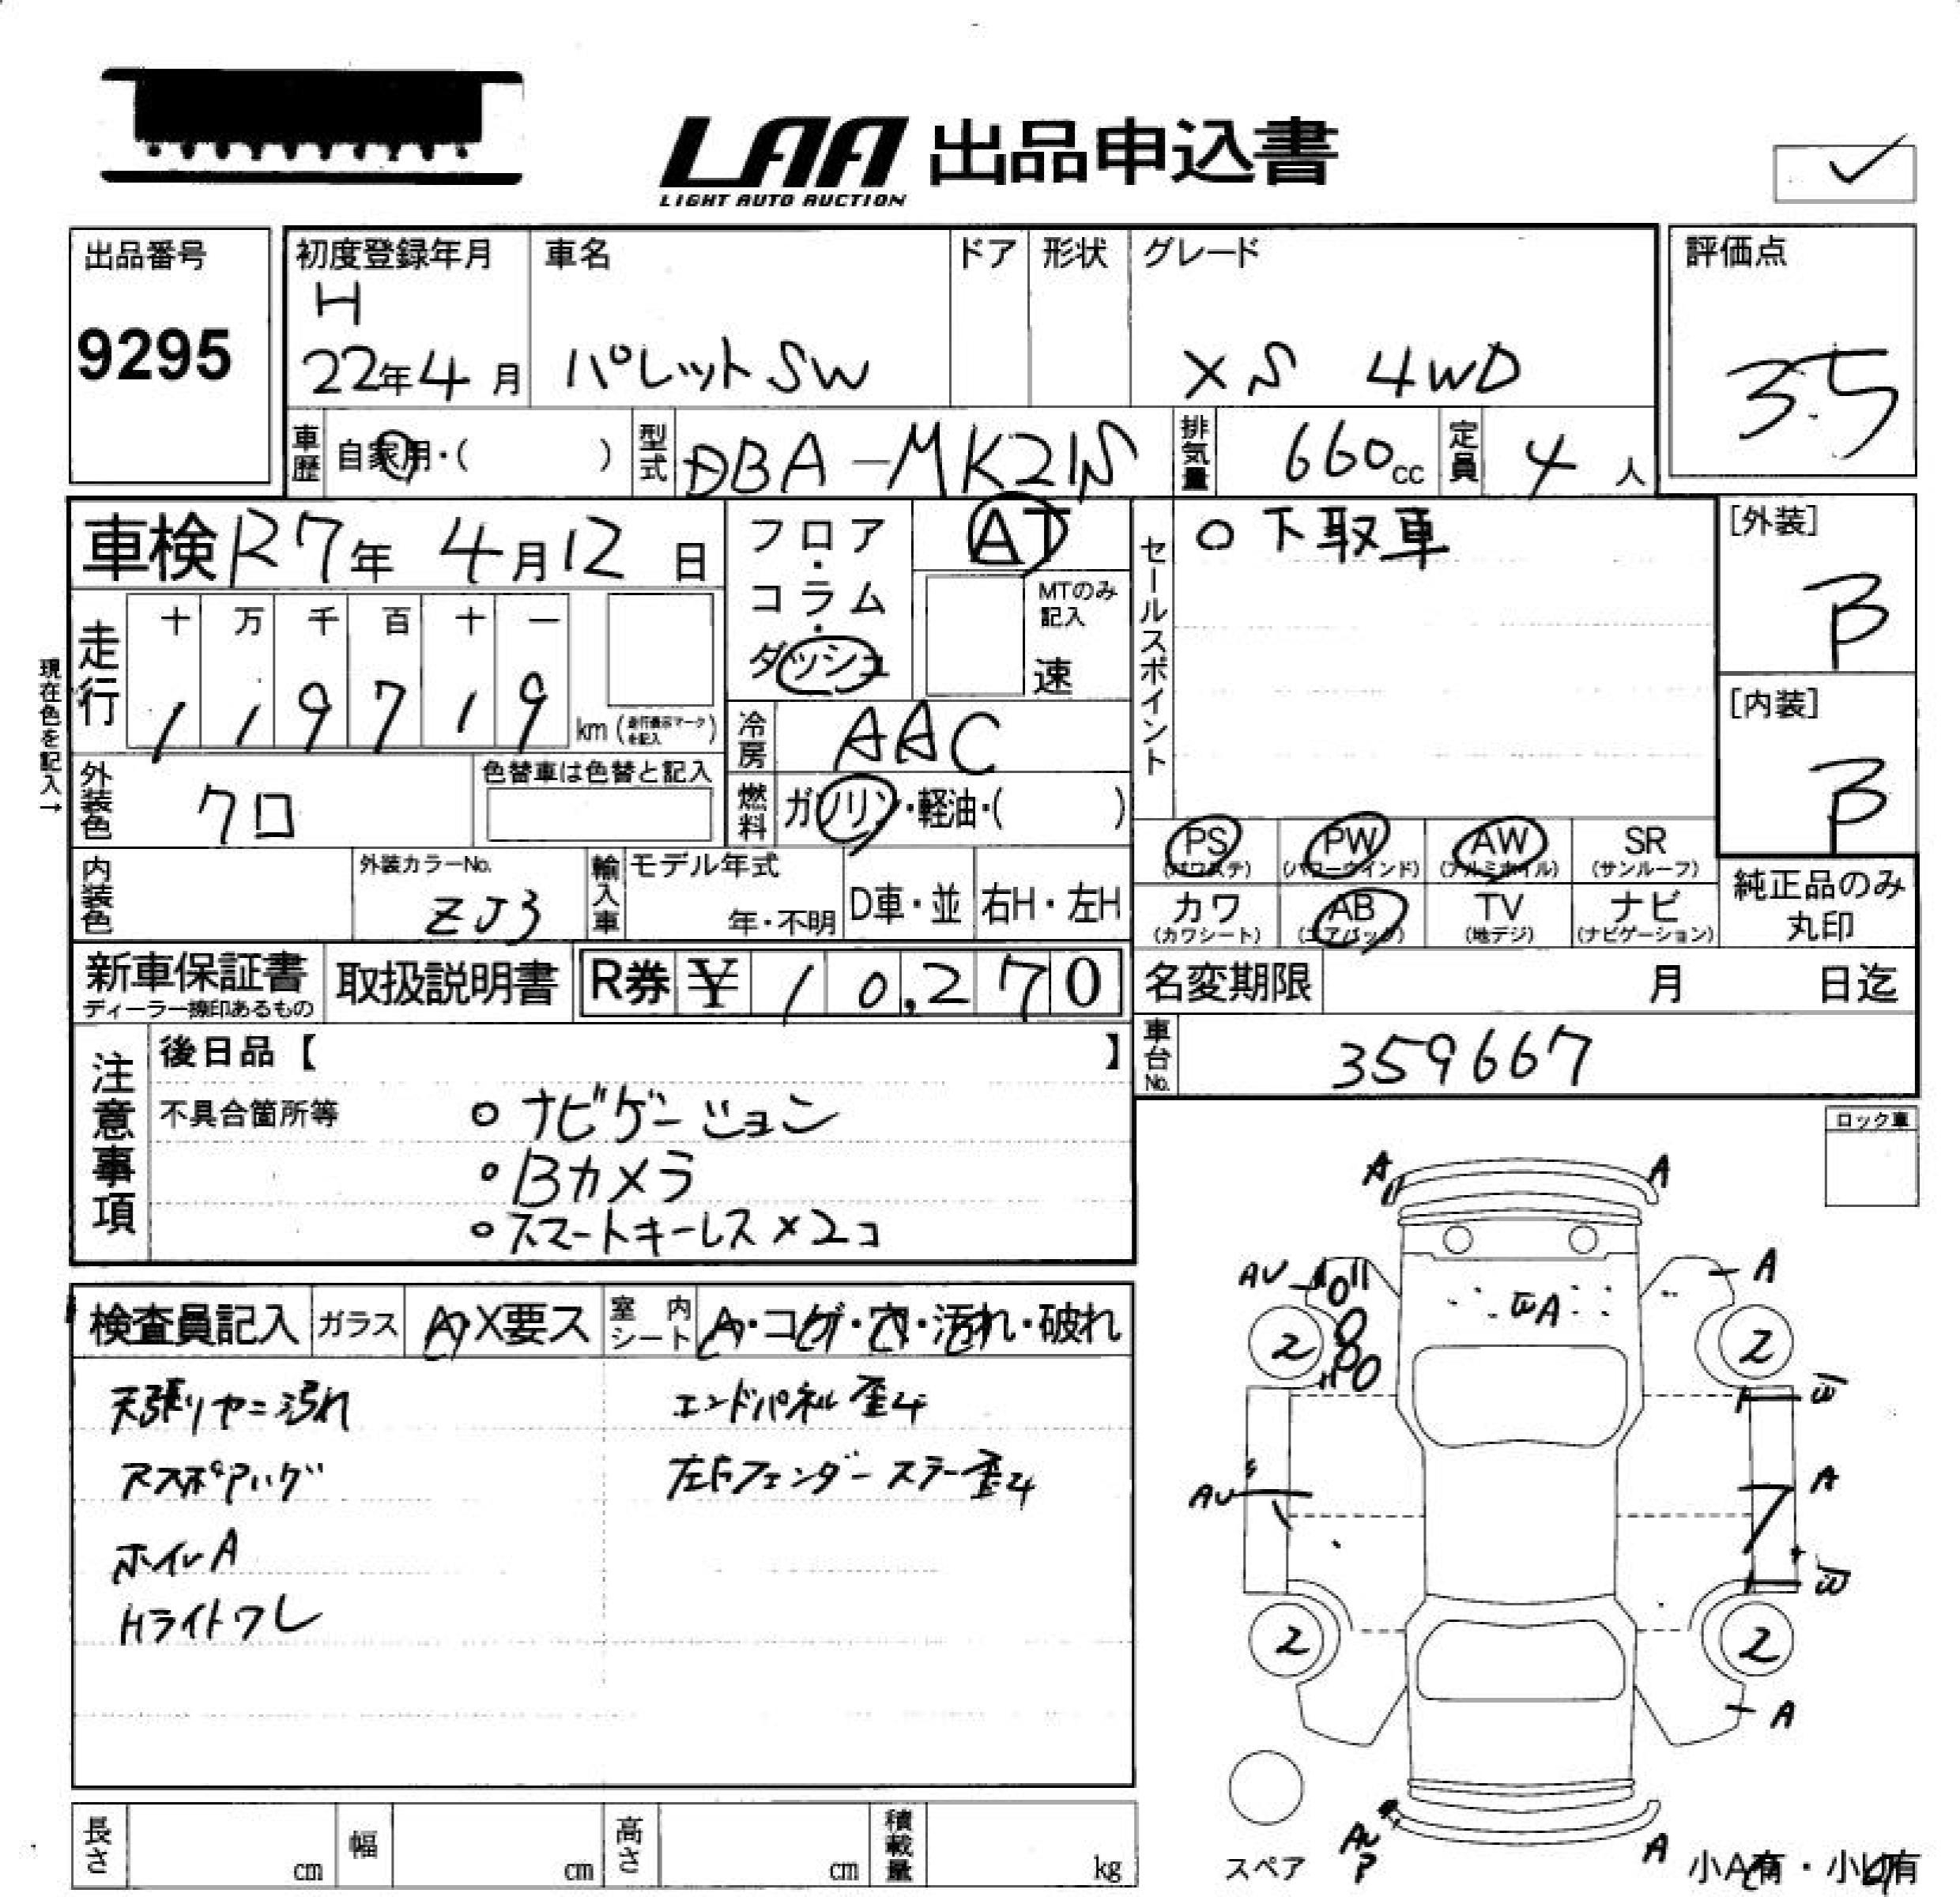 LAA 出品申込書
LIGHT AUTO AUCTION
出品番号
9295
初度登録年月
H
22年4月
車名
パレットSW
ドア
形状
グレード
XS 4WD
評価点
3.5
車歴
自家用・( )
型式
DBA-MK21S
排気量
660cc
定員
4人
車検 R7年 4月12日
フロア・コラム・ダッシュ
AT
MTのみ記入
速
セールスポイント
○下取車
[外装]
B
[内装]
B
現在色を記入→
走行
十 万 千 百 十 一
1 1 9 7 1 9
km (走行表示マークを記入)
冷房
AAC
外装色
クロ
色替車は色替と記入
燃料
ガソリン・軽油・( )
PS
(パワステ)
PW
(パワーウインド)
AW
(アルミホイル)
SR
(サンルーフ)
内装色
外装カラーNo.
ZJ3
輸入車
モデル年式
年・不明
D車・並
右H・左H
カワ
(カワシート)
AB
(エアバック)
TV
(地デジ)
ナビ
(ナビゲーション)
純正品のみ
丸印
新車保証書
ディーラー捺印あるもの
取扱説明書
R券 ¥ 10,270
名変期限
月 日迄
車台No.
359667
注意事項
後日品【 】
不具合箇所等
○ナビゲーション
○Bカメラ
○スマートキーレス×2コ
ロック車
検査員記入
ガラス
A・X要ス
室内シート
A・コゲ・穴・汚れ・破れ
天張りヤニ汚れ
エンドパネル歪み
左右フェンダーステー歪み
ホイルA
HライトワレA A
AU
A
A
2
2
W
AU
A
W
2
2
A
AU
A
スペア
小A有・小U有
長さ
cm
幅
cm
高さ
cm
積載量
kg